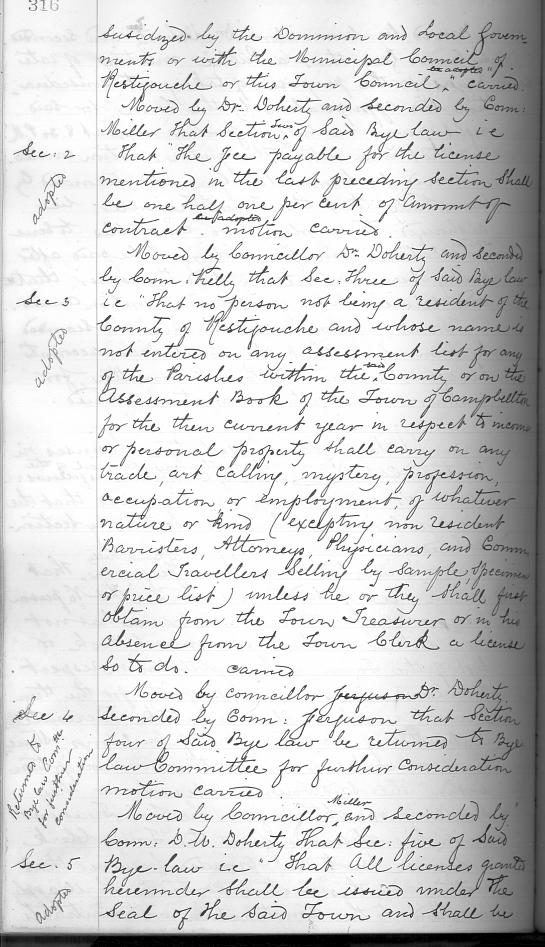 316
susidized by the Dominion and Local Govern-
ments or with the Municipal Council of
be adopted
Restigouche or this Town Council," carried.
Moved by Dr. Doherty and seconded by Coun:
Miller that Section Two of Said Bye law i e
Sec: 2
adopted
that "The Fee payable for the license
mentioned in the last preceding section Shall
be one half one per cent of amount of
be adopted
contract. motion carried.
Moved by Councillor Dr Doherty and seconded
by Coun: Kelly that Sec: Three of Said Bye law
Sec 3
adopted
i e "That no person not being a resident of the
County of Restigouche and whose name is
not entered on any assessment list for any
of the Parishes within the said County or on the
Assessment Book of the Town of Campbellton
for the then current year in respect to income
or personal property shall carry on any
trade, art calling, mystery, profession,
occupation or employment, of whatever
nature or kind (excepting non resident
Barristers, Attorneys, Physicians, and Comm
ercial Travellers Selling by Sample, Specimen
or price list) unless he or they Shall first
obtain from the Town Treasurer or in his
absence from the Town Clerk a license
So to do. carried
Moved by councillor Ferguson Dr. Doherty
Sec 4
Returned to
Bye law Comtte
for further
consideration
Seconded by Coun: Ferguson that Section
four of Said Bye law be returned to Bye
law Committee for further consideration
motion carried.
Moved by Councillor Miller and seconded by
Coun: D. W. Doherty That Sec: five of Said
Sec. 5
adopted
Bye-law i.e "That All licenses granted
hereunder Shall be issued under the
Seal of the Said Town and Shall be